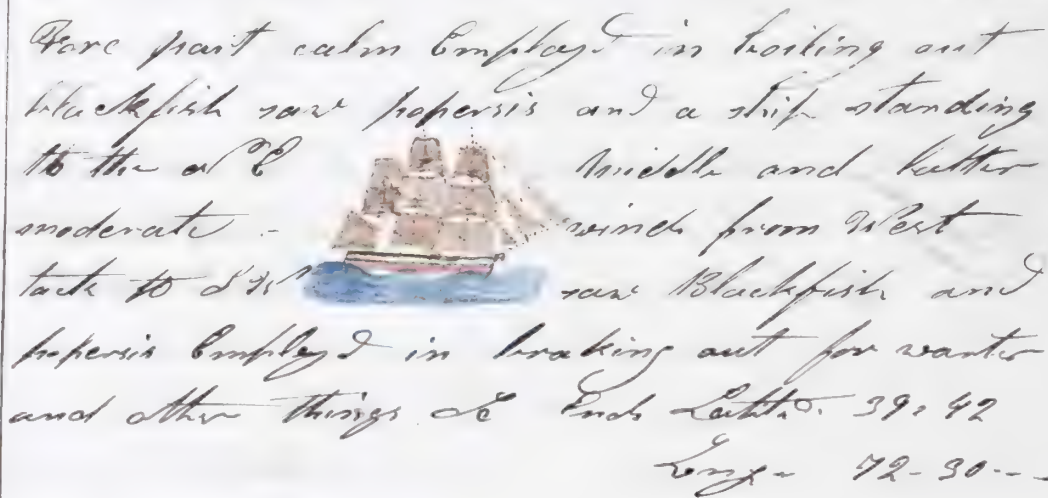 Fore part calm Employd in boiling out
blackfish saw popersis and a ship standing
to the N E middle and latter
moderate - winds from West
tack to SW saw Blackfish and
popersis Employd in braking out for wanter
and other things So Ends Lattd. 39=42
Long- 72-30---